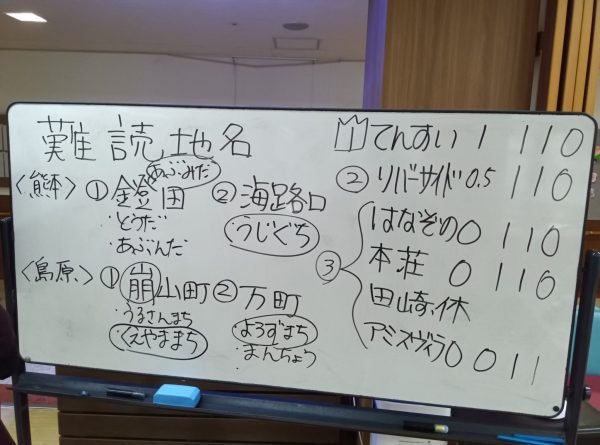 難読地名
<熊本>
①鐙田
あぶみだ
・とうだ
・あぶんだ
②海路口
うじぐち
<島原>
①崩山町
・うるさんまち
くえやままち
②万町
よろずまち
・まんちょう
1 てんすい 1 1 1 0
② リバーサイド 0.5 1 1 0
③
はなぞの 0 1 1 0
本荘 0 1 1 0
田崎、休
アミスヴィラ 0 0 1 1